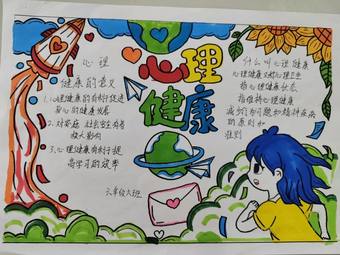 心理
健康
心理
健康的意义
1.心理健康的有利于促进
身心的健康发展
2.对家庭、社会生有着
极大影响
3.心理健康有利于提
高学习的效率
六年级六班
什么叫心理健康
心理健康又称心理卫生
指心理健康状态.
指维持心理健康
减少行为问题和精神疾病
的原则和
准则